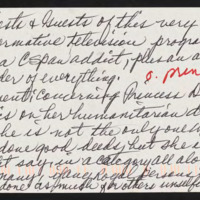 & Guests of this very
formative television progra
a C-span addict, plus an a
der of everything.
concerning Princess D
is on her humanitarian d
he is not the only one w
done good deeds, but she s
et say, in a category all alon
many, if any, Royal persons
done as much for others unself